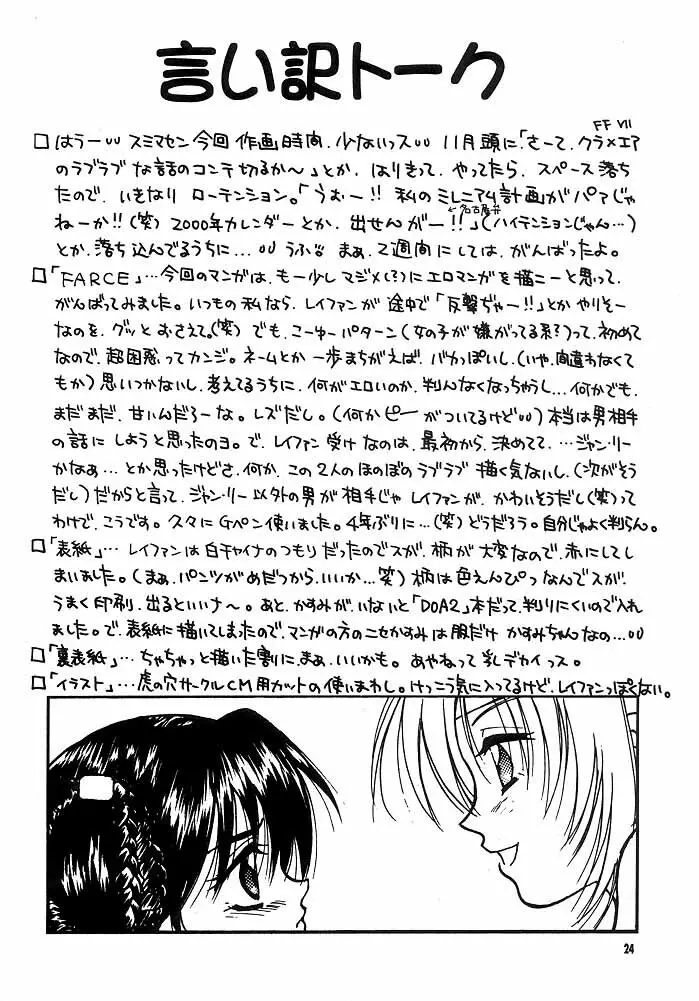 言い訳トーク
FF VII
□はうー○○ スミマセン今回 作画時間、少ないっス○○ 11月頭に「さーて、クラ×エア
のラブラブな話のコンテ切るか〜」とか、はりきって、やってたら、スペース落ち
たので、いきなり ローテンション。「うぉー!! 私のミレニアム計画がパァじゃ
←名古屋弁
ねーか!!(笑) 2000年カレンダーとか、出せんがー!!」(ハイテンションじゃん…)
とか、落ち込んでるうちに…○○ うふ。まぁ、2週間にしては、がんばったよ。
□「FARCE」…今回のマンガは、もー少しマジメ(?)にエロマンガを描こーと思って、
がんばってみました。いつもの私なら、レイファンが途中で「反撃ぢゃー!!」とかやりそー
なのを、グッとおさえて。(笑) でも、こーゆーパターン(女の子が嫌がってる系?)って、初めて
なので、超困惑ってカンジ。ネームとか 一歩まちがえば、バカっぽいし、(いや、間違わなくて
もか) 思いつかないし、考えてるうちに、何がエロいのか、判んなくなっちゃうし…何かでも、
まだまだ、甘いんだろーな。レズだし。(何かピーがついてるけど○○)本当は男相手
の話にしようと思ったのヨ。で、レイファン受けなのは、最初から、決めてて、…ジャン・リー
かなぁ…とか思ったけどさ、何か、この2人のほのぼのラブラブ 描く気ないし、(次がそう
だし)だからと言って、ジャン・リー以外の男が相手じゃ レイファンが、かわいそうだし(笑)って
わけで、こうです。久々にGペン使いました。4年ぶりに…(笑)どうだろう。自分じゃよく判らん。
□「表紙」…レイファンは白チャイナのつもりだったのでスが、柄が大変なので、赤にしてし
まいました。(まぁ、パンツがめだつから、いいか…笑)柄は色えんぴつなんでスが、
うまく印刷、出るといいナ〜。あと、かすみが、いないと「DOA2」本だって、判りにくいので入れ
ました。で、表紙に描いてしまったので、マンガの方のニセかすみは服だけ かすみちゃんなの…○○
□「裏表紙」…ちゃちゃっと描いた割に、まぁ、いいかも。あやねって乳デカイっス。
□「イラスト」…虎の穴サークルCM用カットの使いまわし。けっこう気に入ってるけど、レイファンっぽくない。
24